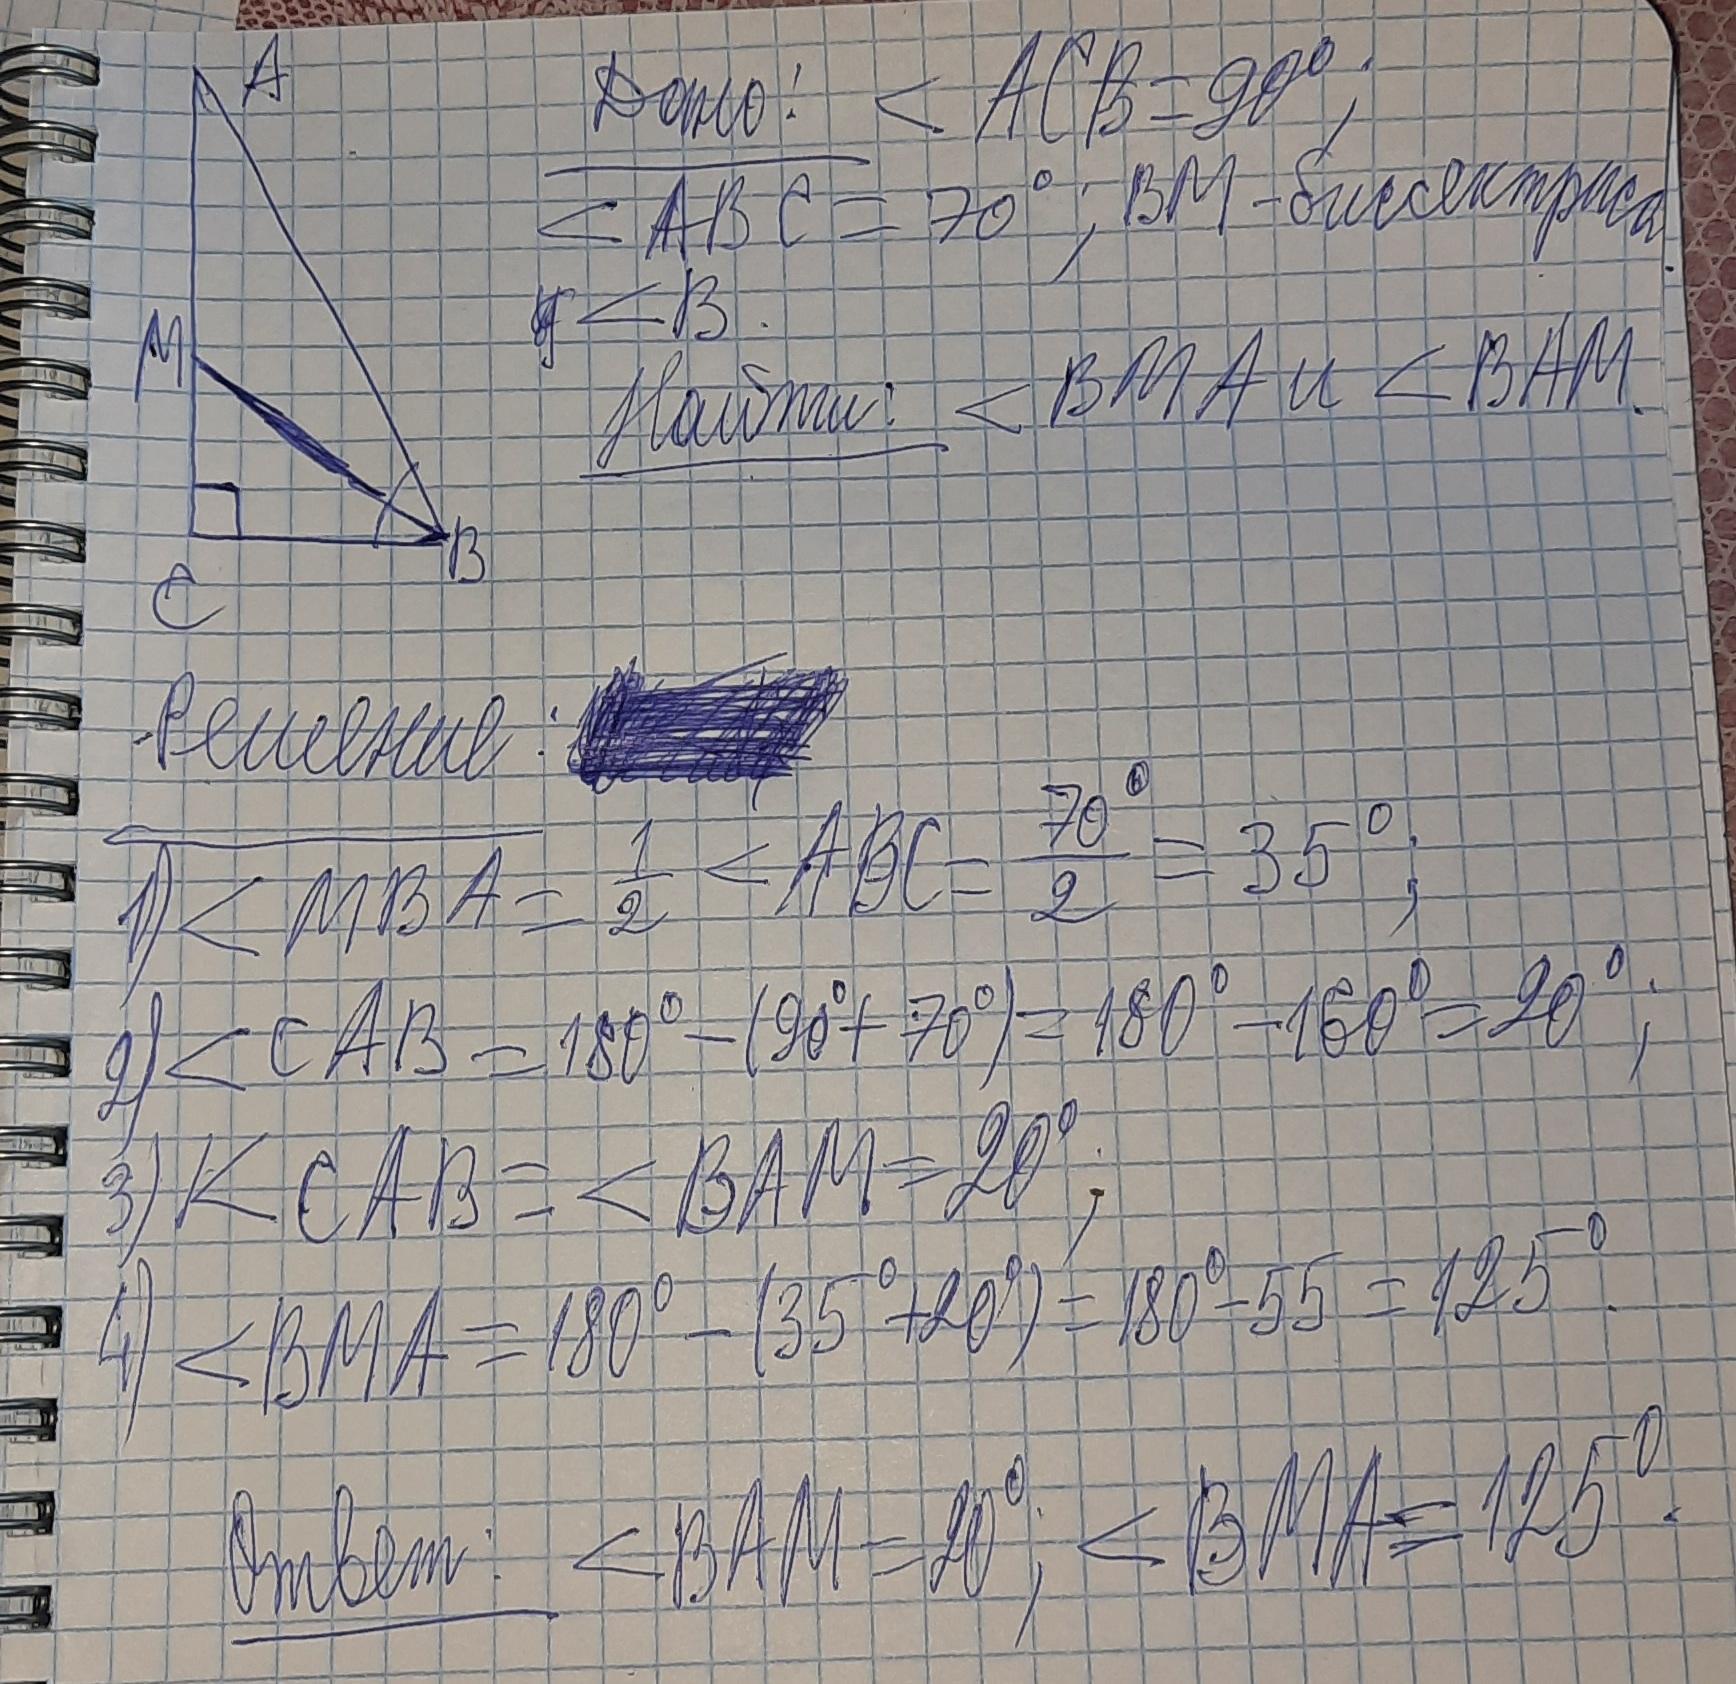 A
Дано: < ACB = 90°;
< ABC = 70°; BM - биссектриса
< B.
M
Найти: < BMA и < BAM.
B
C
Решение:
1) < MBA = 1/2 < ABC = 70°/2 = 35°;
2) < CAB = 180° - (90° + 70°) = 180° - 160° = 20°;
3) < CAB = < BAM = 20°;
4) < BMA = 180° - (35° + 20°) = 180° - 55 = 125°.
Ответ: < BAM = 20°; < BMA = 125°.